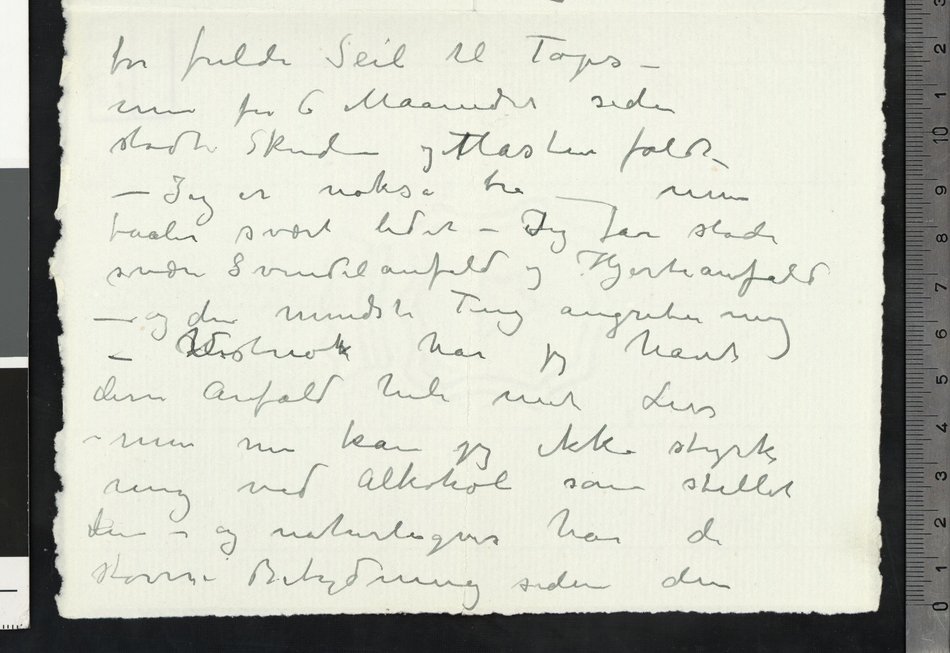 for fulde Seil til Tops –
men for 6 Maaneder siden
stødte Skuden og Masten faldt –
– Jeg er nokså bra – men
taaler svært lidet – Jeg faar stadi
svære Svindelanfald og Hjerteanfald
– og den mindste Ting angriber mig
– Vistnok har jeg havt
disse Anfald hele mit Livs
– men nu kan jeg ikke styrke
mig ved Alkohol som stillet
dem – og naturligvis har de
større Betydning siden den